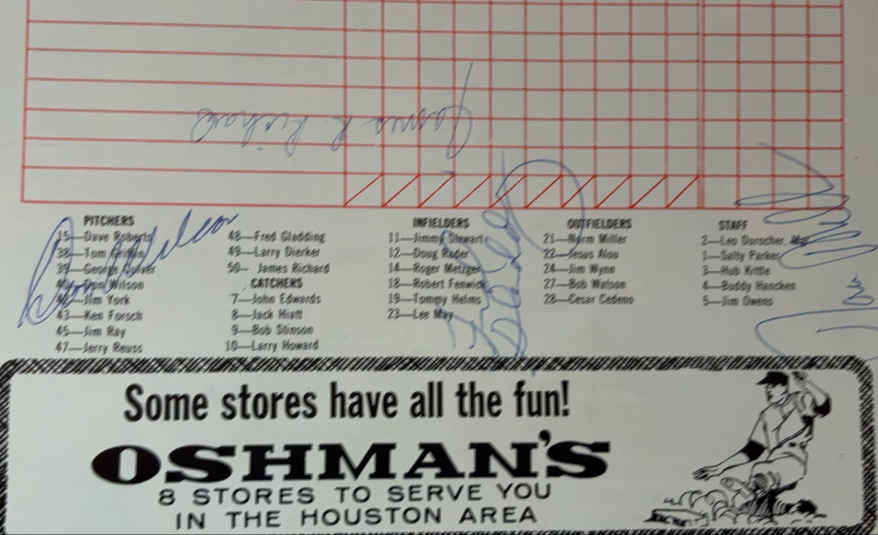 James R. Richard
Don Wilson
PITCHERS
15—Dave Roberts
38—Tom Griffin
39—George Culver
40—Don Wilson
42—Jim York
43—Ken Forsch
45—Jim Ray
47—Jerry Reuss
48—Fred Gladding
49—Larry Dierker
50— James Richard
CATCHERS
7—John Edwards
8—Jack Hiatt
9—Bob Stinson
10—Larry Howard
INFIELDERS
11—Jimmy Stewart
12—Doug Rader
14—Roger Metzger
18—Robert Fenwick
19—Tommy Helms
23—Lee May
OUTFIELDERS
21—Norm Miller
22—Jesus Alou
24—Jim Wynn
27—Bob Watson
28—Cesar Cedeno
STAFF
2—Leo Durocher, Mgr
1—Salty Parker
3—Hub Kittle
4—Buddy Hancken
5—Jim Owens
Some stores have all the fun!
OSHMAN'S
8 STORES TO SERVE YOU
IN THE HOUSTON AREA